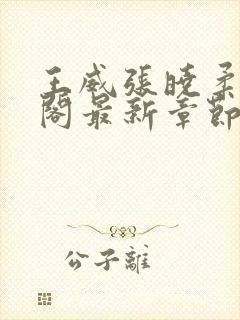 王威張曉柔
閣最新章節
公子離